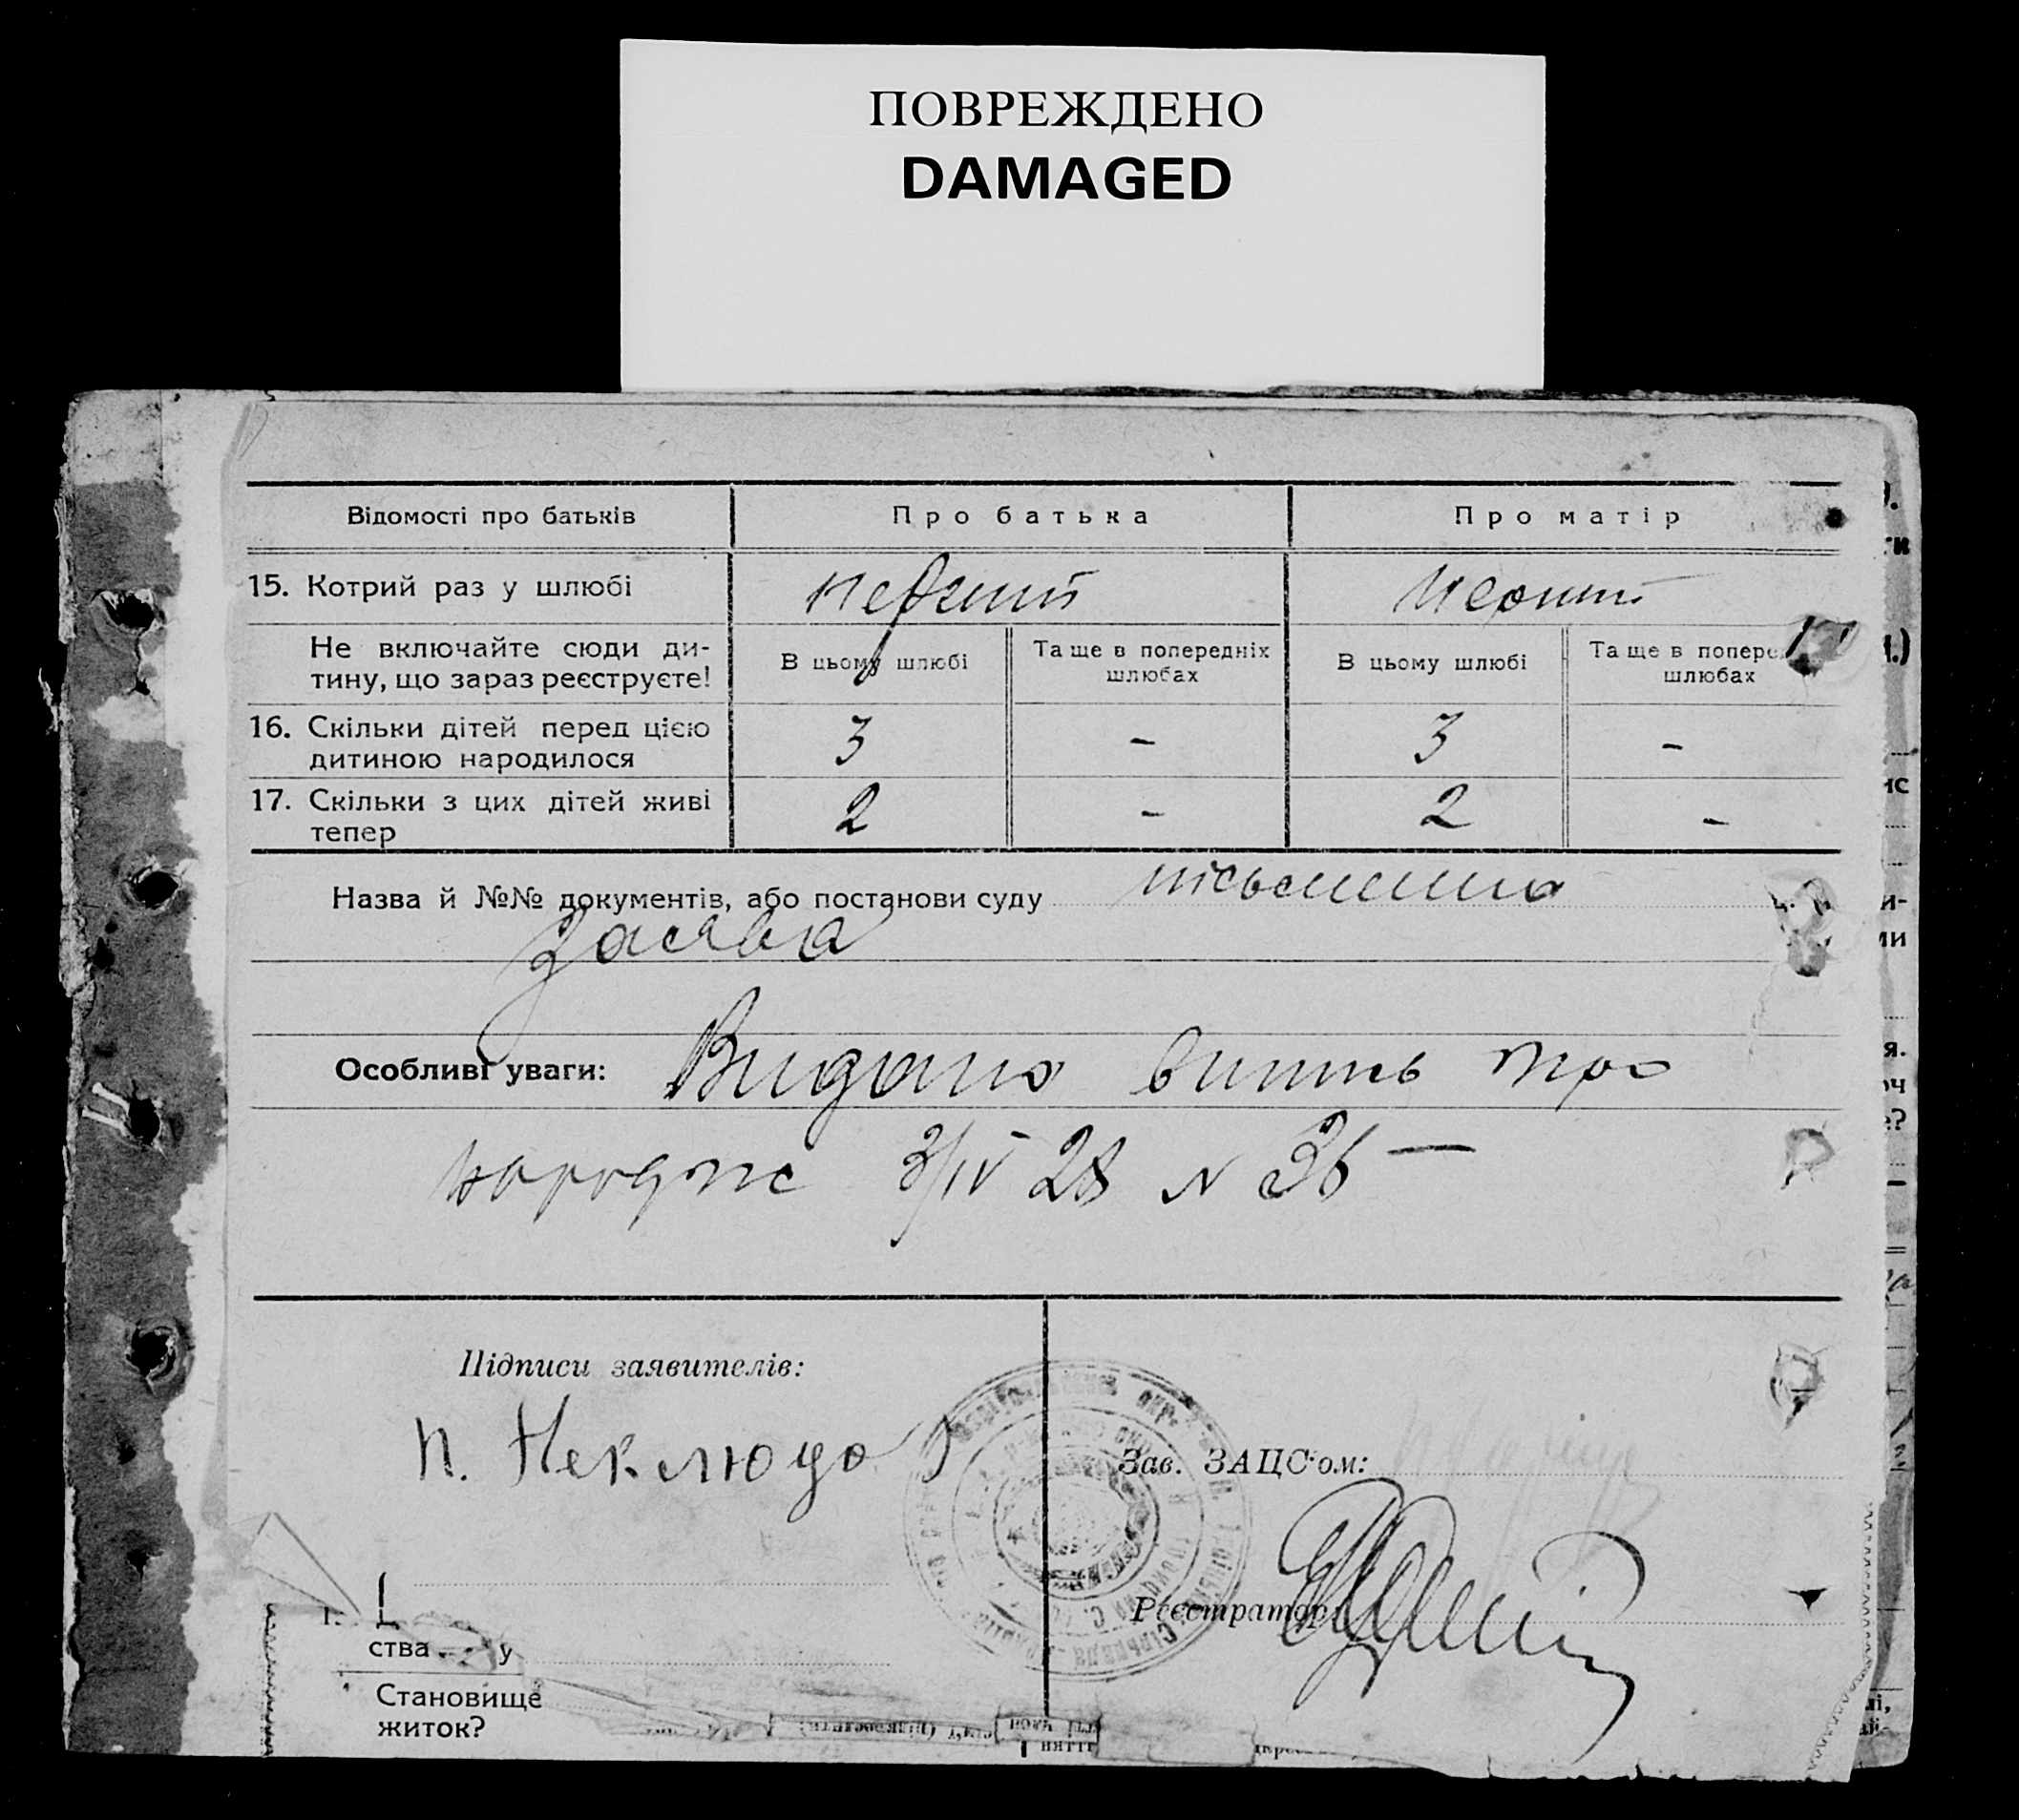 ПОВРЕЖДЕНО
DAMAGED
Відомості про батьків
Про батька
Про матір
15. Котрий раз у шлюбі
перший
перший
Не включайте сюди ди-
тину, що зараз реєструєте!
В цьому шлюбі
Та ще в попередніх
шлюбах
В цьому шлюбі
Та ще в попере
шлюбах
16. Скільки дітей перед цією
дитиною народилося
3
-
3
-
17. Скільки з цих дітей живі
тепер
2
-
2
-
Назва й №№ документів, або постанови суду письменна
заява
Особливі уваги: Видано випись про
народже 3/IV 28 N 36 —
Підписи заявителів:
П. Неклюдов
Зав. ЗАЦС'ом:
Реєстратор:
ства у
Становище
житок?